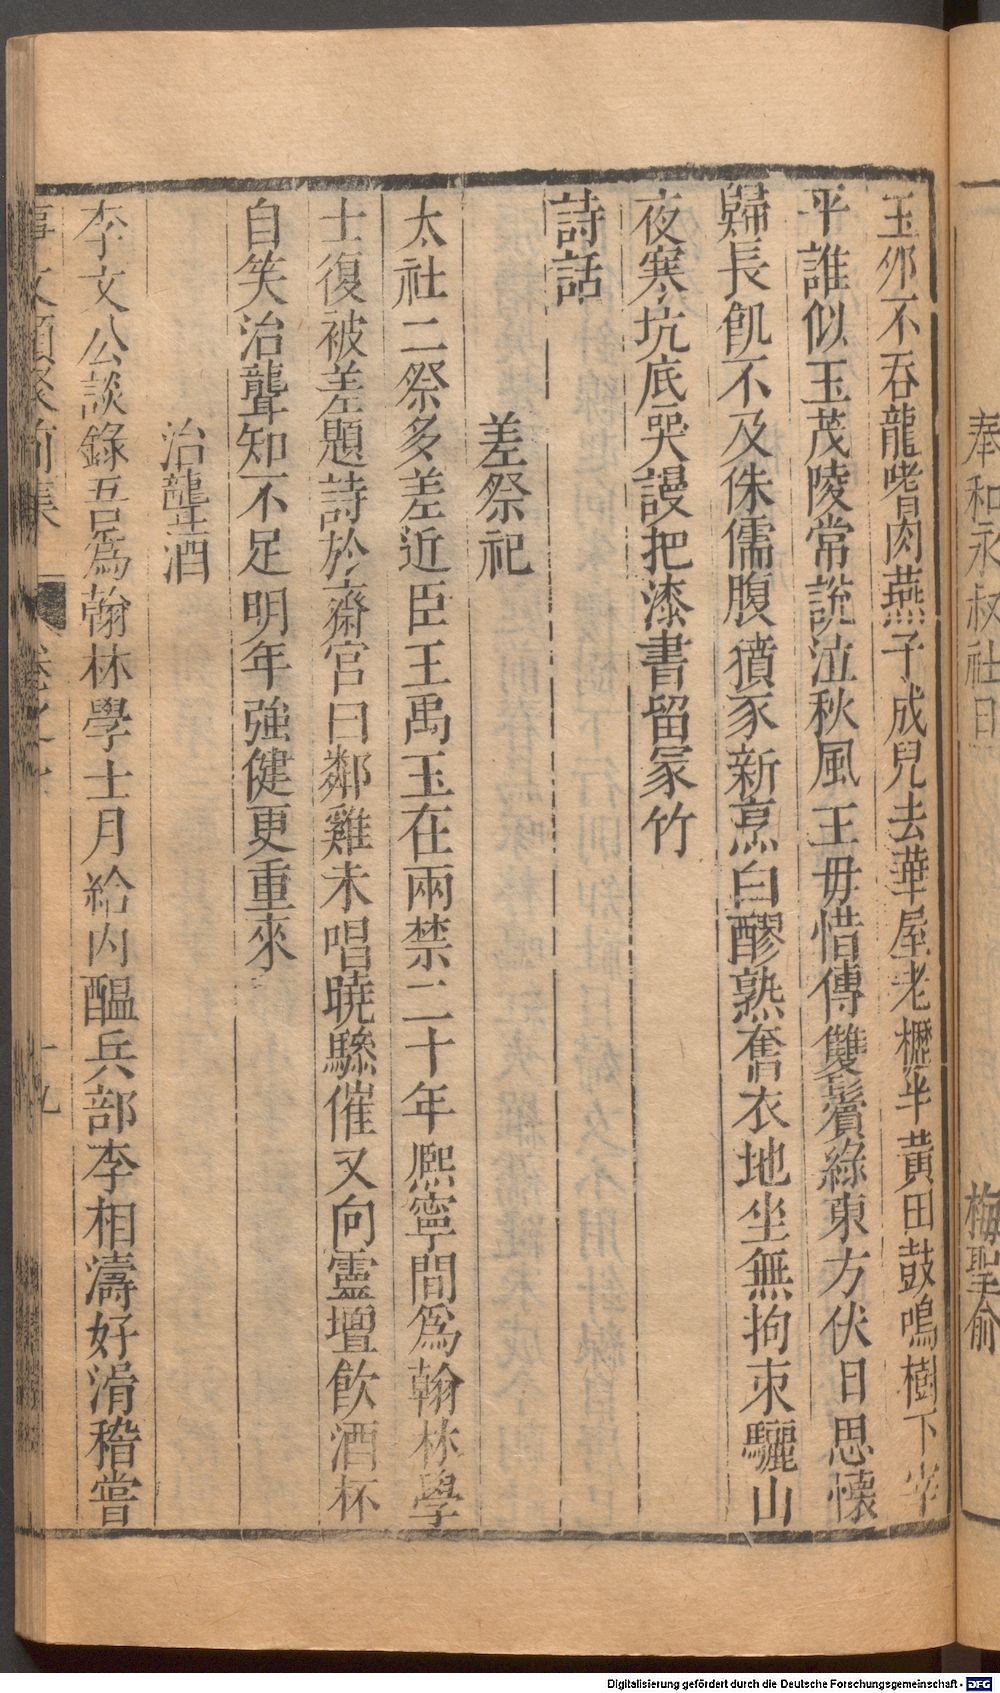 奉和永叔社日　梅聖俞
玉卵不吞龍嗜肉燕子成兒去華屋老櫪半黃田鼓鳴樹下宰
平誰似玉茂陵常說泣秋風王毋惜傳雙鬢綠東方伏日思懷
歸長飢不及侏儒腹獖豕新烹白醪熟奮衣地坐無拘束驪山
夜寒坑底哭謾把漆書留冢竹
詩話
差祭祀
太社二祭多差近臣王禹玉在兩禁二十年熈寧間爲翰林學
士復被差題詩於齋官曰鄰雞未唱曉驂催又向靈壇飲酒杯
自笑治聾知不足明年強健更重來
治聾酒
李文公談錄吾爲翰林學士月給內醞兵部李相濤好滑稽嘗
事文類聚前集　卷之七　十九
Digitalisierung gefördert durch die Deutsche Forschungsgemeinschaft - DFG